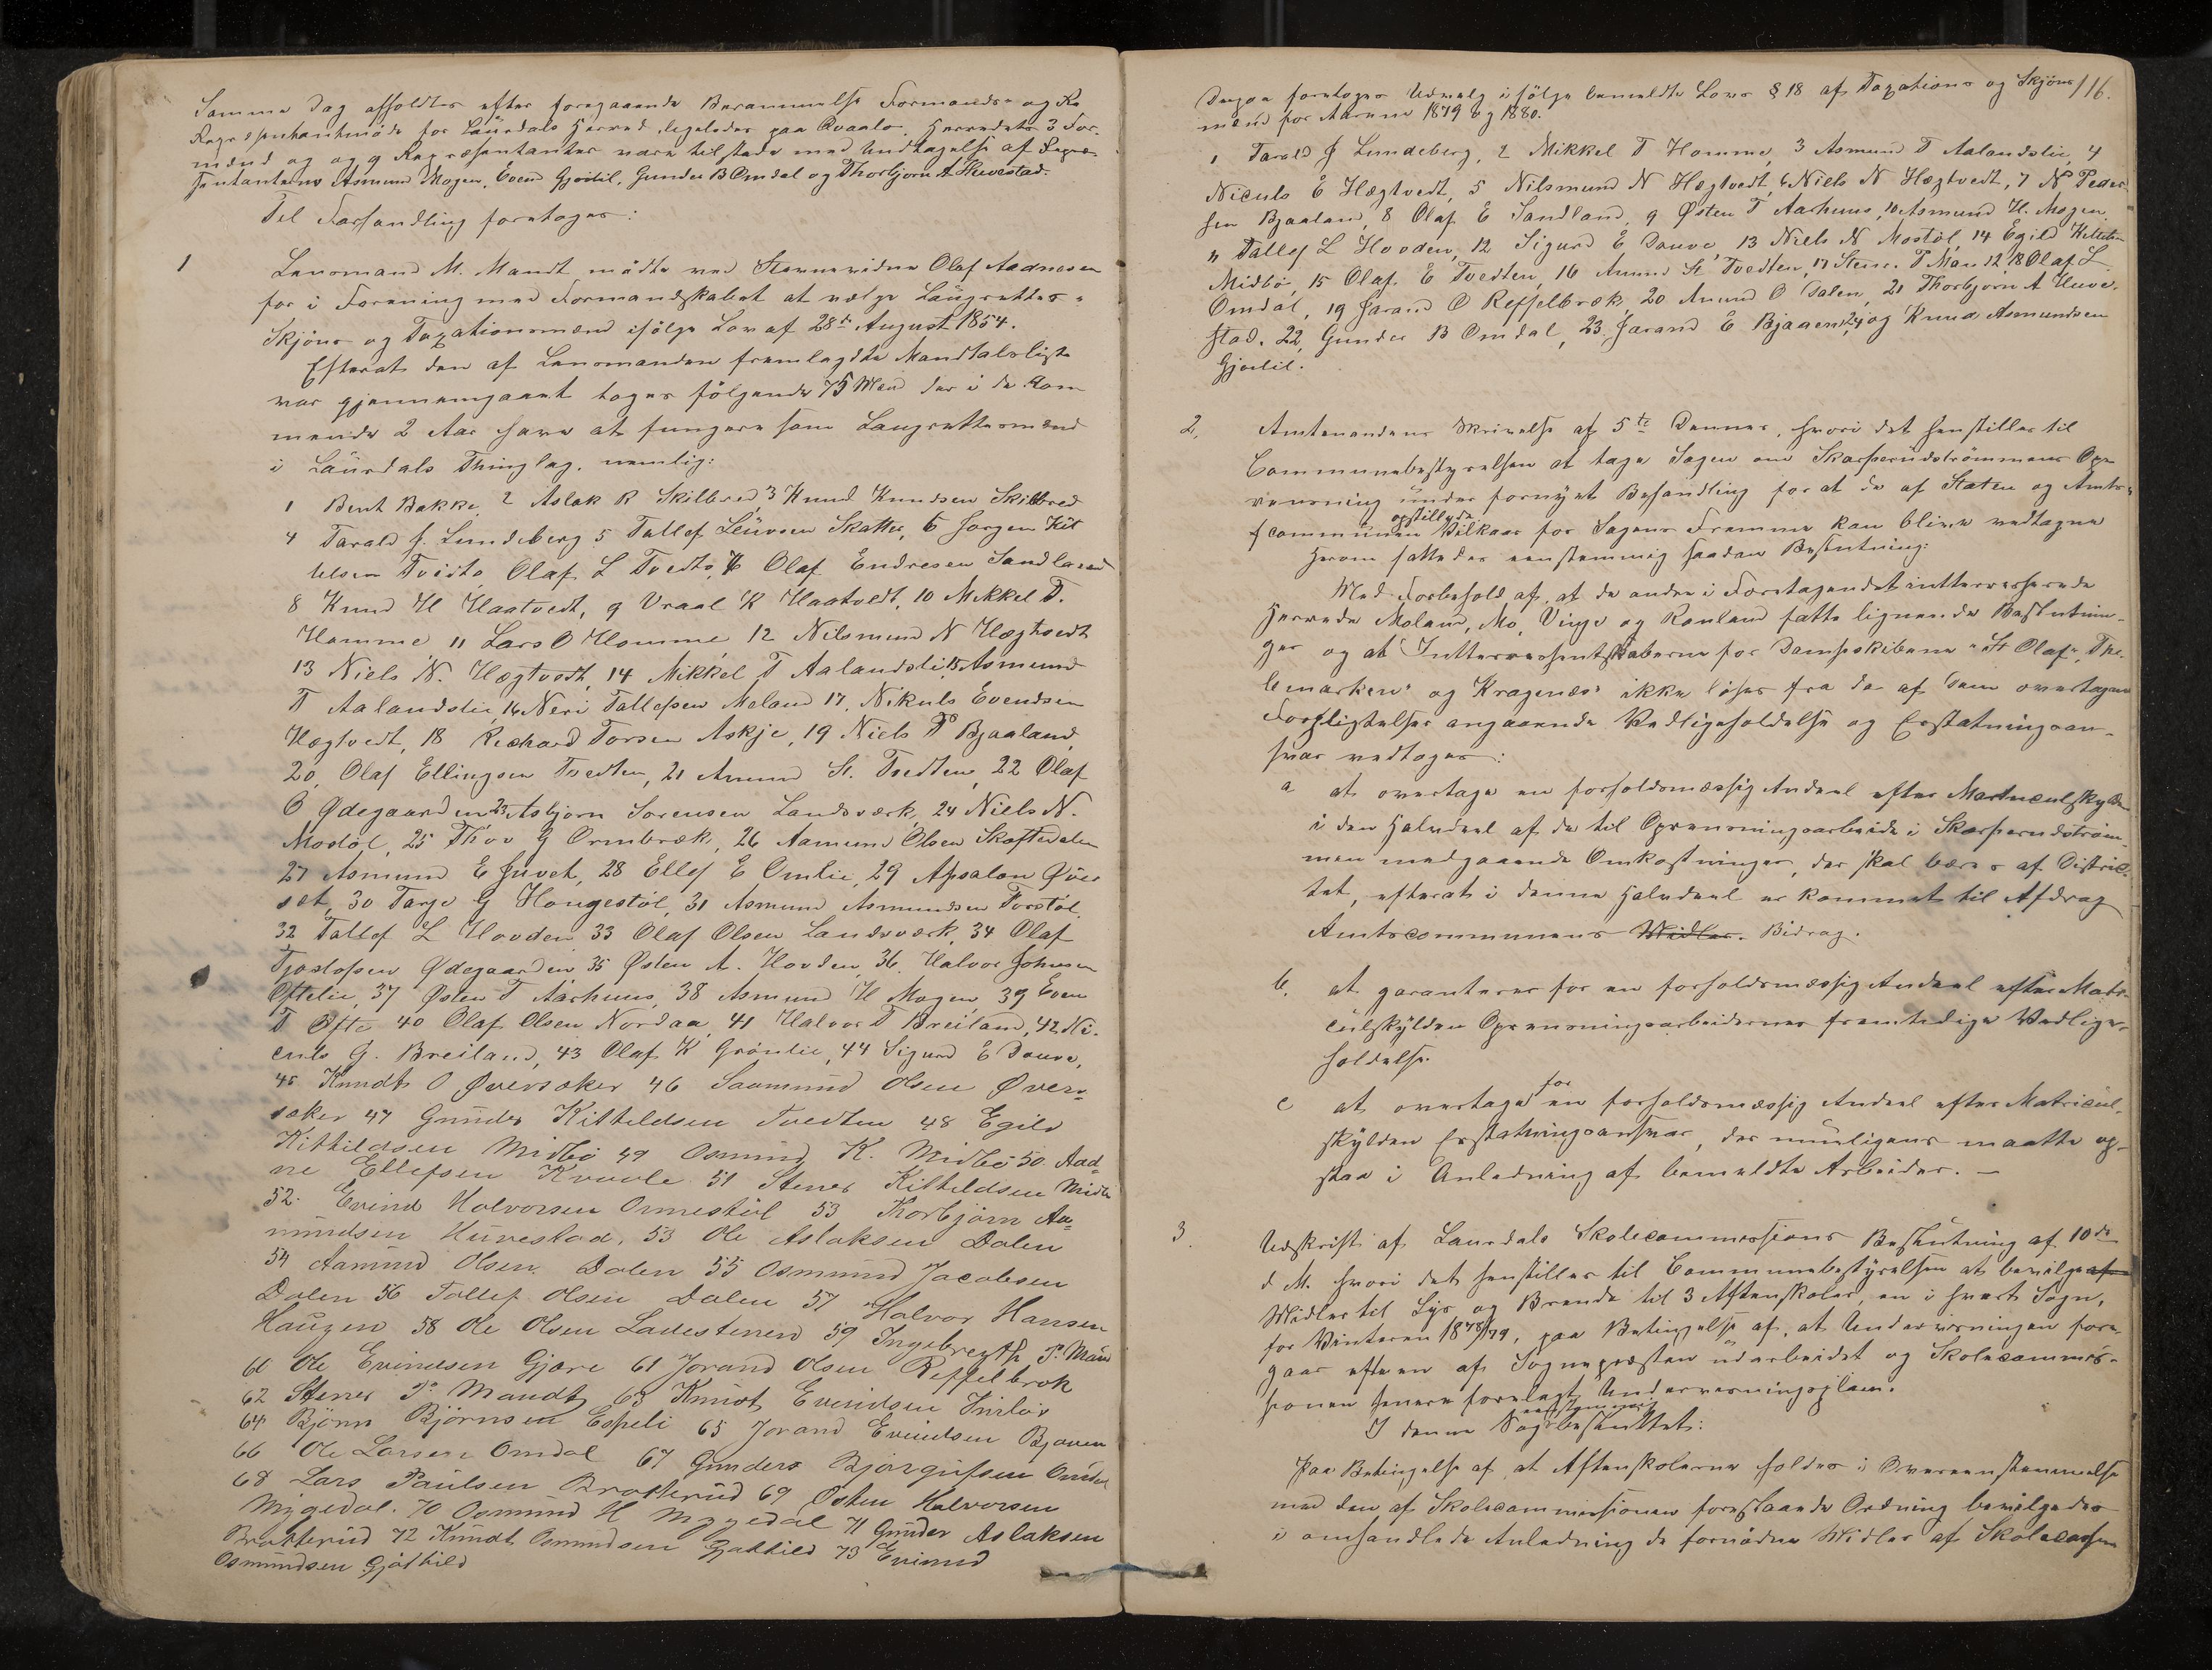 Samme Dag afholdtes efter foregaaende Berammelse Formands- og Re
Repræsentantmöde for Laurdals Herred, ligeledes paa Kvaale. Herredets 3 For-
mænd og og 9 Repræsentanter vare tilstede med Undtagelse af Repræ-
sentanterne Asmund Mogen, Evend Gjøitil, Gunder B Omdal og Thorbjörn A Huvestad.
Til Forhandling foretoges:
1 Lensmand M. Mandt mødte med Stevnevidne Olaf Aadnesen
for i Forening med Formandskabet at vælge Laugrettes-
Skjöns og Taxationsmænd ifölge Lov af 28de August 1854.
Efterat den af Lensmanden fremlagdte Mandtalsliste
var gjennemgaaet toges fölgende 75 Mænd der i de kom
mende 2 Aar have at fungere som Laugrettesmænd
i Laurdals Thinglag, nemlig:
1 Bent Bakke, 2 Aslak R Skilbred, 3 Knud Knudsen Skilbred
4 Tarald J. Lundeberg 5 Tallef Leüvsen Skatter, 6 Jörgen Kit
telsen Tvedte, Olaf L Tvedte, 7 Olaf Endresen Sandland
8 Knud H Haatvedt, 9 Vraal K Haatvedt, 10 Mikkel T.
Homme, 11 Lars O Homme 12 Nilsmund N Hægtvedt
13 Niels N. Hægtvedt, 14 Mikkel T Aalandslie, 15 Asmund
T Aalandslie, 16 Neri Tallefsen Meland 17. Nikuls Evendsen
Hægtvedt, 18 Richard Torsen Askje, 19 Niels P Bjaaland,
20, Olaf Ellingsen Tvedten, 21 Anund St. Tvedten, 22 Olaf
O Ødegaarden 23 Asbjörn Sorensen Landsværk, 24 Niels N.
Mostöl, 25 Thov G Ormbræk, 26 Aamund Olsen Skaftedalen
27 Asmund E Juvet, 28 Ellef E Omlie, 29 Apsalon Øver
sæt, 30 Targe G Hougestöl, 31 Asmund Asmundsen Torstöl,
32 Tallef L Hovden 33 Olaf Olsen Landsværk, 34 Olaf
Tjostolfsen Ødegaarden, 35 Østen A. Hovden, 36. Halvor Johnsen
Oftelie, 37 Østen T Aarhuus, 38 Asmund H Mogen, 39 Even
T Ofte 40 Olaf Olsen Nordaa, 41 Halvor T Breiland, 42 Ni-
culs G. Breiland, 43 Olaf K Grönlie, 44 Sigurd E Douve,
45 Knudt O Qversaker 46 Saamund Olsen Øver-
saker 47 Gunder Kitteldsen Tvedten 48 Egild
Kittildsen Midbö 49 Osmund K. Midbö 50 Aad-
ne Ellefsen Kvaale 51 Stener Kitteldsen Midbö
52. Evind Halvorsen Ormestöl 53 Thorbjörn Aa-
mundsen Huvestad, 53 Ole Aslaksen Dalen
54 Aamund Olsen. Dalen 55 Osmund Jacobsen
Dalen 56 Tallef Olsen Dalen 57 Halvor Hansen
Haugen 58 Ole Olsen Ladestenen 59 Ingebregth P. Man
60 Ole Evindsen Gjøre 61 Jorand Olsen Reffelbrok
62 Stener P. Mandt 63 Knudt Evindsen Juvlös
64 Björn Björnsen Espeli 65 Jorand Evindsen Bjaaen
66 Ole Larsen Omdal 67 Gunder Bjørgufsen Omdal
68 Lars Paulsen Bratterud 69 Østen Halvorsen
Mygedal. 70 Osmund H Mygedal 71 Gunder Aslaksen
Bratterud 72 Knudt Osmundsen Gjøthild 73 Evind
Osmundsen Gjøthild
116.
Derpaa foretoges Udvalg ifölge bemeldte Lovs § 18 af Taxations og Skjöns
mænd for Aarene 1879 og 1880.
1 Tarald J Lundeberg, 2 Mikkel T Homme, 3 Asmund T Aalandslie, 4
Niculs E Hægtvedt, 5 Nilsmund N Hægtvedt, 6 Niels N Hægtvedt, 7 N Peder-
sen Bjaaland, 8 Olaf E Sandland, 9 Østen T Aarhuus, 10 Asmund H. Mogen
11 Tallef L Hovden, 12 Sigurd E Douve, 13 Niels N Mostöl, 14 Egild Kittelsen
Midbö, 15 Olaf E Tvedten, 16 Anund St Tvedten, 17 Stener P Mandt 18 Olaf L
Omdal, 19 Jarand O Reffelbræk, 20 Anund O Dalen, 21 Thorbjörn A Huve-
stad. 22, Gunder B Omdal, 23, Jarand E Bjaaen, 24 og Knud Asmundsen
Gjøitil.
2, Amtmandens Skrivelse af 5te Dennes, hvori det henstilles til
Communebestyrelsen at tage Sagen om Skarperudströmmens Op-
rensning under fornyet Behandling for at de af Staten og Amts-
communen opstillede Vilkaar for Sagens Fremme kan blive vedtagne
Herom fattedes eenstemmig saadan Beslutning:
Med Forbehold af, at de andre i Foretagendet interesserede
Herreder Moland, Mo, Vinje og Rauland fatte lignende Beslutnin-
ger og at Interessentskaberne for Dampskibene "St Olaf", "The-
lemarken" og Kragenæs ikke löses fra de af dem overtagne
Forpligtelser angaaende Vedligeholdelse og Erstatningsan-
svar vedtoges:
a at overtage en forholdsmæssig Andeel efter Matriculskylden
i den Halvdeel af de til Oprensningsarbeidet i Skarperudström-
men medgaaende Omkostninger, der skal bæres af Distric-
tet, efterat i denne Halvdeel er kommet til Afdrag
Amtscommunens Midler. Bidrag.
b. at garanteres for en forholdsmæssig Andeel efter Matri-
culskylden Oprensningsarbeidernes fremtidige Vedlige-
holdelse.
c at overtage for en forholdsmæssig Andeel efter Matricul-
skylden Erstatningsansvar, der muligens maatte op-
staa i Anledning af bemeldte Arbeider. —
3. Udskrift af Laurdals Skolecommissions Beslutning af 10de
d. M. hvori det henstilles til Communebestyrelsen at bevilge af
Midler til Lys og Brænde til 3 Aftenskoler, en i hvert Sogn,
for Vinteren 1878/79, paa Betingelse af, at Undervisningen fore-
gaar efter en af Sognepræsten udarbeidet og Skolecommis-
sionen senere forelagt Undervisningsplan.
I denne Sag eenstemmig besluttet:
Paa Betingelse af, at Aftenskolerne holdes i Overeenstemmelse
med den af Skolecommissionen foreslaaede Ordning bevilgedes
i omhandlede Anledning de fornødne Midler af Skolecassen